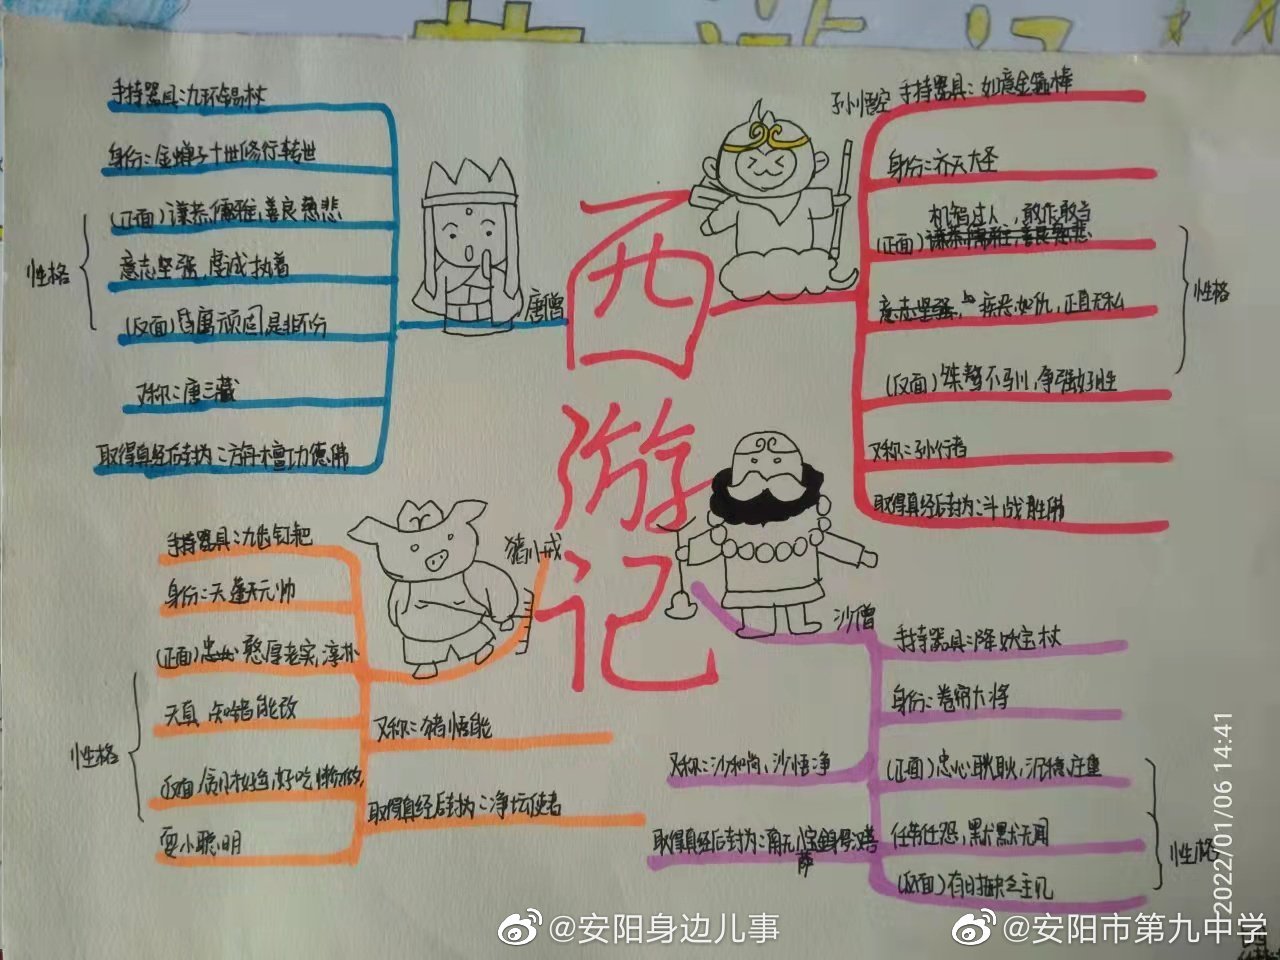 西游记
手持器具:九环锡杖
身份:金蝉子十世修行转世
(正面)谦恭儒雅,善良慈悲
意志坚强,虔诚执着
(反面)昏庸顽固是非不分
又称:唐三藏
取得真经后封为:旃檀功德佛
性格
唐僧
孙悟空
手持器具:如意金箍棒
身份:齐天大圣
机智过人,敢作敢当
(正面)谦恭儒雅,善良慈悲
意志坚强,疾恶如仇,正直无私
(反面)桀骜不驯,争强好胜
又称:孙行者
取得真经后封为:斗战胜佛
性格
猪八戒
手持器具:九齿钉耙
身份:天蓬天元帅
(正面)憨厚老实,淳朴
天真 知错能改
反面)好吃懒做
耍小聪明
性格
又称:猪悟能
取得真经后封为:净坛使者
沙僧
手持器具:降妖宝杖
身份:卷帘大将
(正面)忠心耿耿,沉稳庄重
任劳任怨,默默无闻
(反面)有时缺乏主见
性格
又称:沙和尚、沙悟净
取得真经后封为:南无八宝金身罗汉菩
萨
2022/01/06 14:41
@安阳身边儿事
@安阳市第九中学